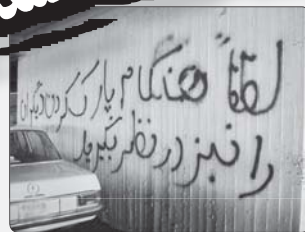 لطفاً هنگام پارک کردن دیگران
را نیز در نظر بگیرید